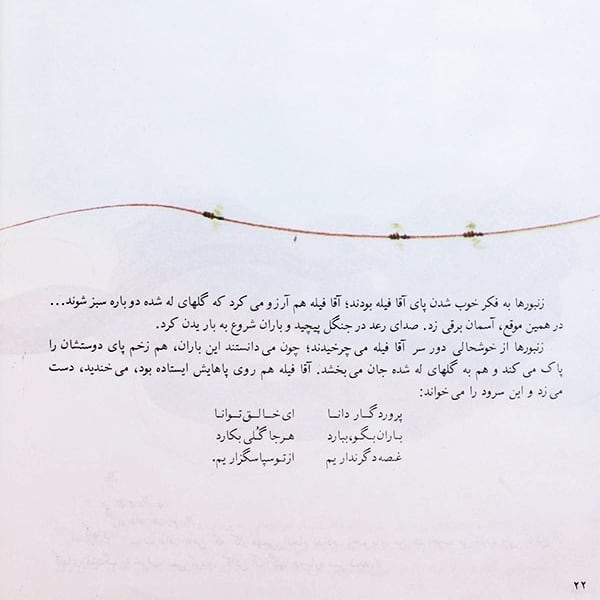 زنبورها به فکر خوب شدن پای آقا فیله بودند؛ آقا فیله هم آرزو می کرد که گلهای له شده دوباره سبز شوند...
در همین موقع، آسمان برقی زد. صدای رعد در جنگل پیچید و باران شروع به باریدن کرد.
زنبورها از خوشحالی دور سر آقا فیله می چرخیدند؛ چون می دانستند این باران، هم زخم پای دوستشان را
پاک می کند و هم به گلهای له شده جان می بخشد. آقا فیله هم روی پاهایش ایستاده بود، می خندید، دست
می زد و این سرود را می خواند:
پروردگار دانا ای خالق توانا
باران بگو، ببارد هرجا گُلی بکارد
غصه دگر نداریم از تو سپاسگزاریم.
۲۲